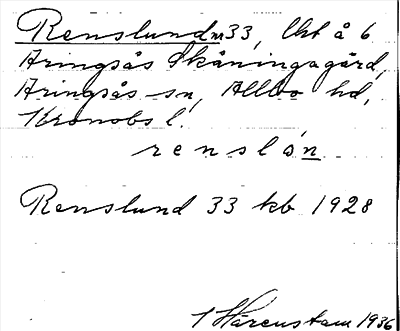 Renslund m 33, Uht å 6
Aringsås Skåningagård,
Aringsås sn, Allbo hd,
Kronobs l.
renslón
Renslund 33 kb 1928
Hårenstam 1936